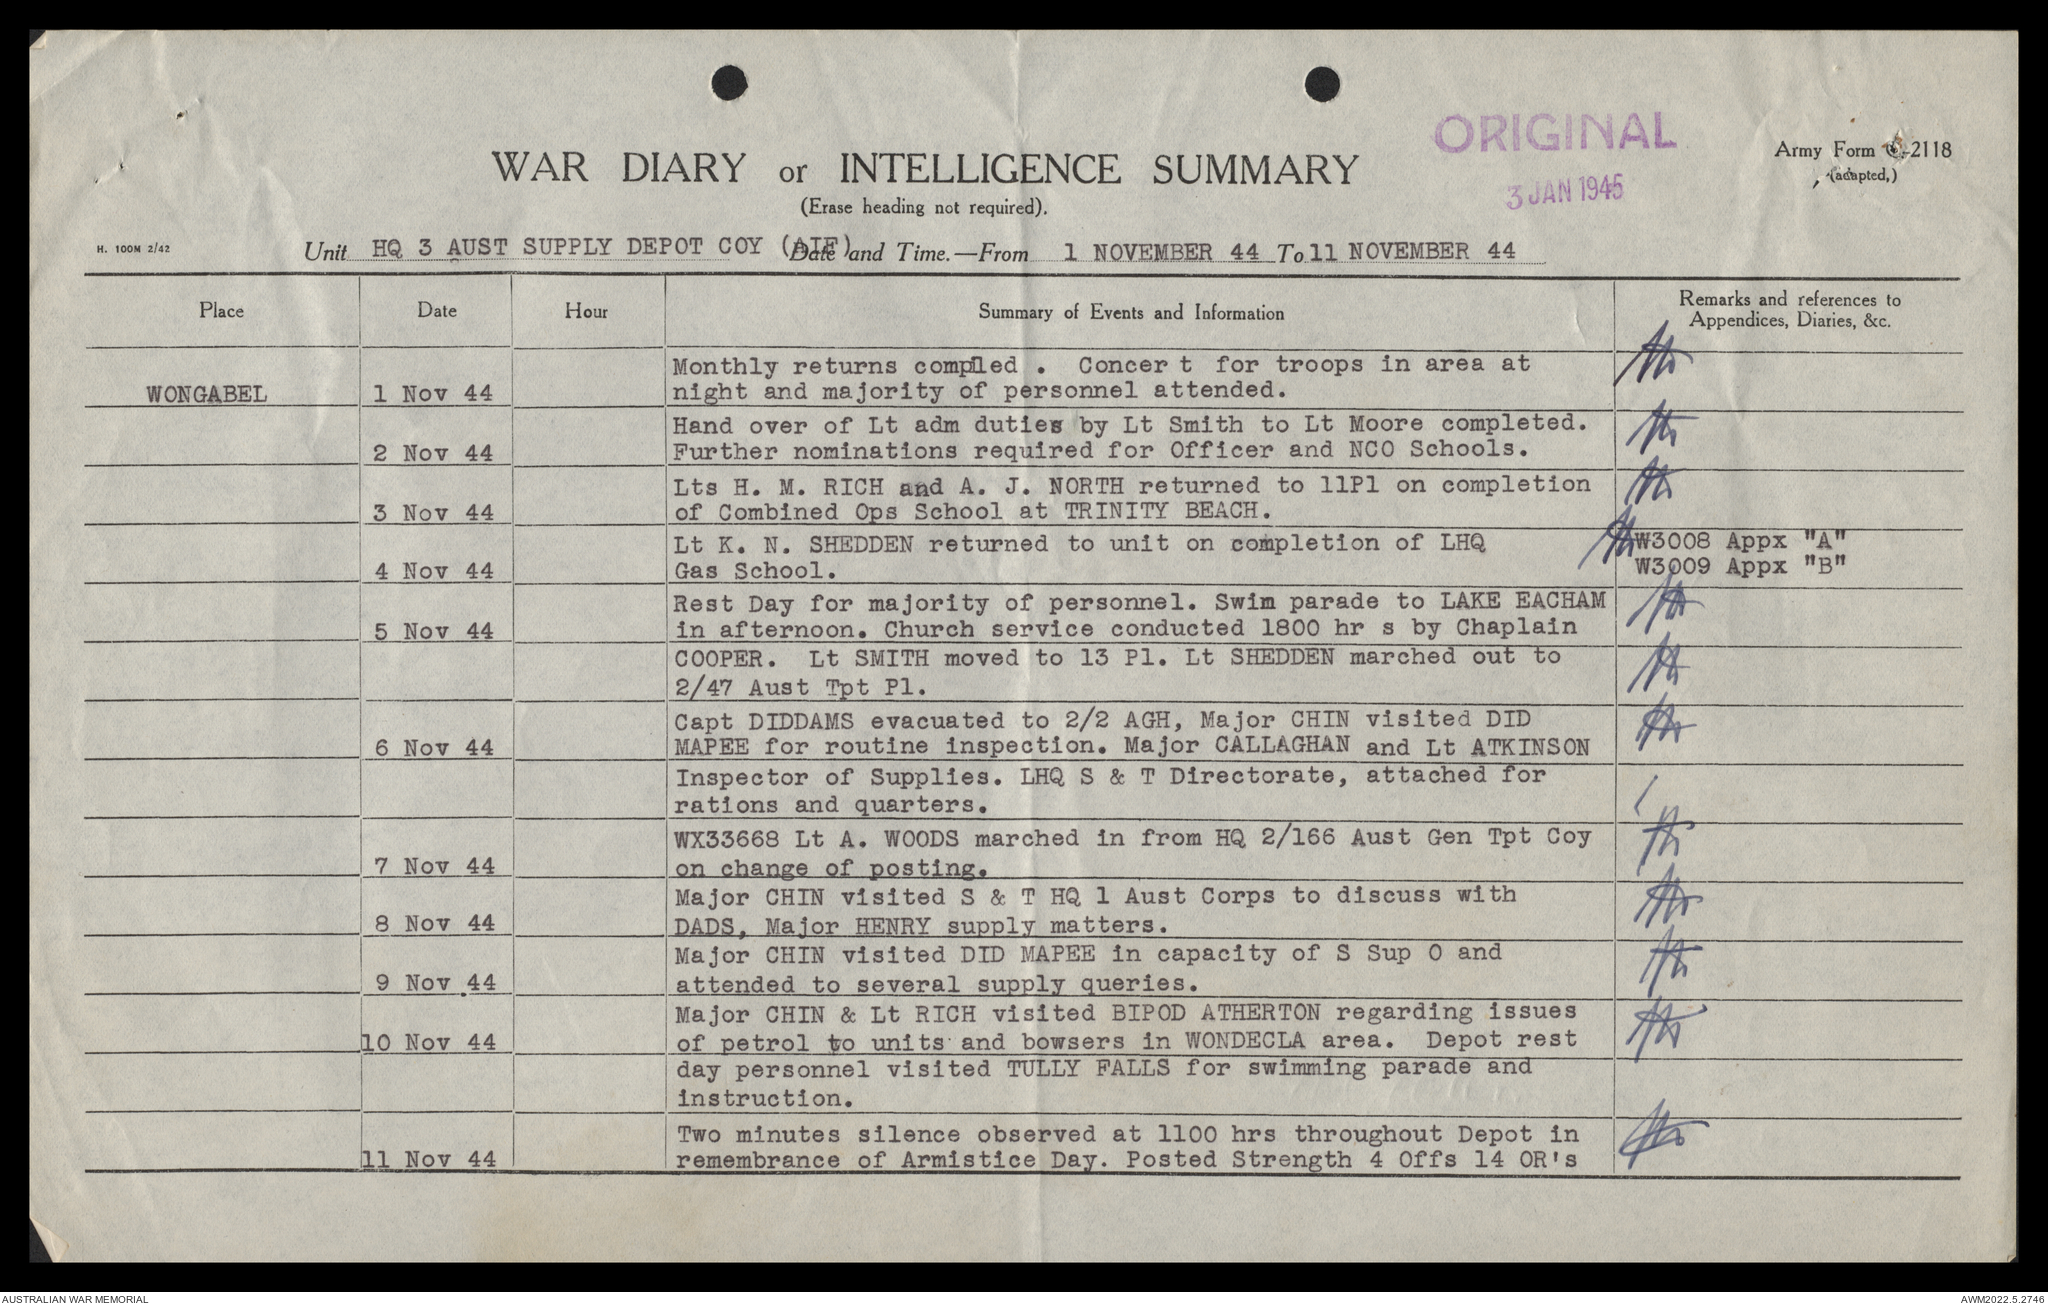 ORIGINAL
3 JAN 1945
Army Form C.-2118
(adapted,)
WAR DIARY or INTELLIGENCE SUMMARY
(Erase heading not required).
H. 100M 2/42
Unit HQ 3 AUST SUPPLY DEPOT COY (AIF) Date and Time.—From 1 NOVEMBER 44 To 11 NOVEMBER 44
Place Date Hour Summary of Events and Information Remarks and references to
Appendices, Diaries, &c.
Monthly returns compled . Concer t for troops in area at
WONGABEL 1 Nov 44 night and majority of personnel attended.
Hand over of Lt adm duties by Lt Smith to Lt Moore completed.
2 Nov 44 Further nominations required for Officer and NCO Schools.
Lts H. M. RICH and A. J. NORTH returned to 11Pl on completion
3 Nov 44 of Combined Ops School at TRINITY BEACH.
Lt K. N. SHEDDEN returned to unit on completion of LHQ W3008 Appx "A"
4 Nov 44 Gas School. W3009 Appx "B"
Rest Day for majority of personnel. Swim parade to LAKE EACHAM
5 Nov 44 in afternoon. Church service conducted 1800 hr s by Chaplain
COOPER. Lt SMITH moved to 13 Pl. Lt SHEDDEN marched out to
2/47 Aust Tpt Pl.
Capt DIDDAMS evacuated to 2/2 AGH, Major CHIN visited DID
6 Nov 44 MAPEE for routine inspection. Major CALLAGHAN and Lt ATKINSON
Inspector of Supplies. LHQ S & T Directorate, attached for
rations and quarters.
WX33668 Lt A. WOODS marched in from HQ 2/166 Aust Gen Tpt Coy
7 Nov 44 on change of posting.
Major CHIN visited S & T HQ 1 Aust Corps to discuss with
8 Nov 44 DADS, Major HENRY supply matters.
Major CHIN visited DID MAPEE in capacity of S Sup O and
9 Nov .44 attended to several supply queries.
Major CHIN & Lt RICH visited BIPOD ATHERTON regarding issues
10 Nov 44 of petrol to units and bowsers in WONDECLA area. Depot rest
day personnel visited TULLY FALLS for swimming parade and
instruction.
Two minutes silence observed at 1100 hrs throughout Depot in
11 Nov 44 remembrance of Armistice Day. Posted Strength 4 Offs 14 OR's
AUSTRALIAN WAR MEMORIAL AWM2022.5.2746